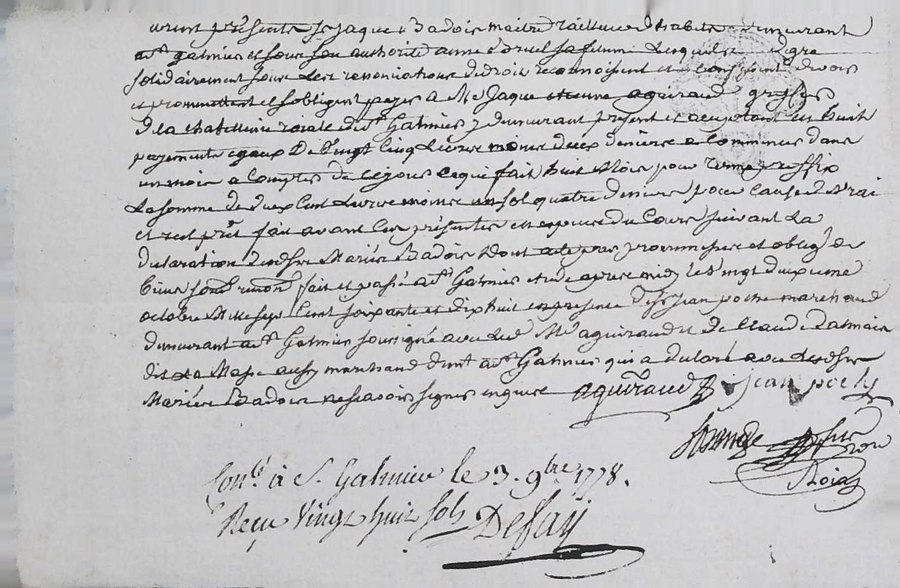 urent présents Sr Jaque Badoit maitre tailleur d'habits demeurant
a St galmier et sous son authorité anne sa femme lesquels de gré
solidairement sous les renonciations de droit reconnoissent et confessent devoir
et promettent et s'obligent payer a Me Jaque etienne aguiraud greffier
de la chatellenie roiale de St Galmier y demeurant present et acceptant en huit
payements egaux de vingt cinq livres moins deux deniers a commencer dans
un mois a compter de ce jour ce que fait huit mois pour terme preffix
la somme de deux cent livres moins un sol quatre deniers pour cause de vrai
et réel prêt fait avant les présentes en especes du cours suivant la
declaration desdits Mariés Badoit dont acte par promesse et oblig de
biens soum renon fait et passé a St Galmier etude apres midi le vingt deuxieme
octobre mil sept cent soixante et dix huit en presence de Sr Jean marchand
demeurant a St Galmier soussigné avec led Me aguiraud et de Claude
dit La marchand dmt a St Galmier qui a declaré avec lesdits
Mariés Badoit ne scavoir signer enquis aguiraud jean
Conlé à St Galmier le 3. 9bre 1778.
Reçu Vingt huit sols Defay